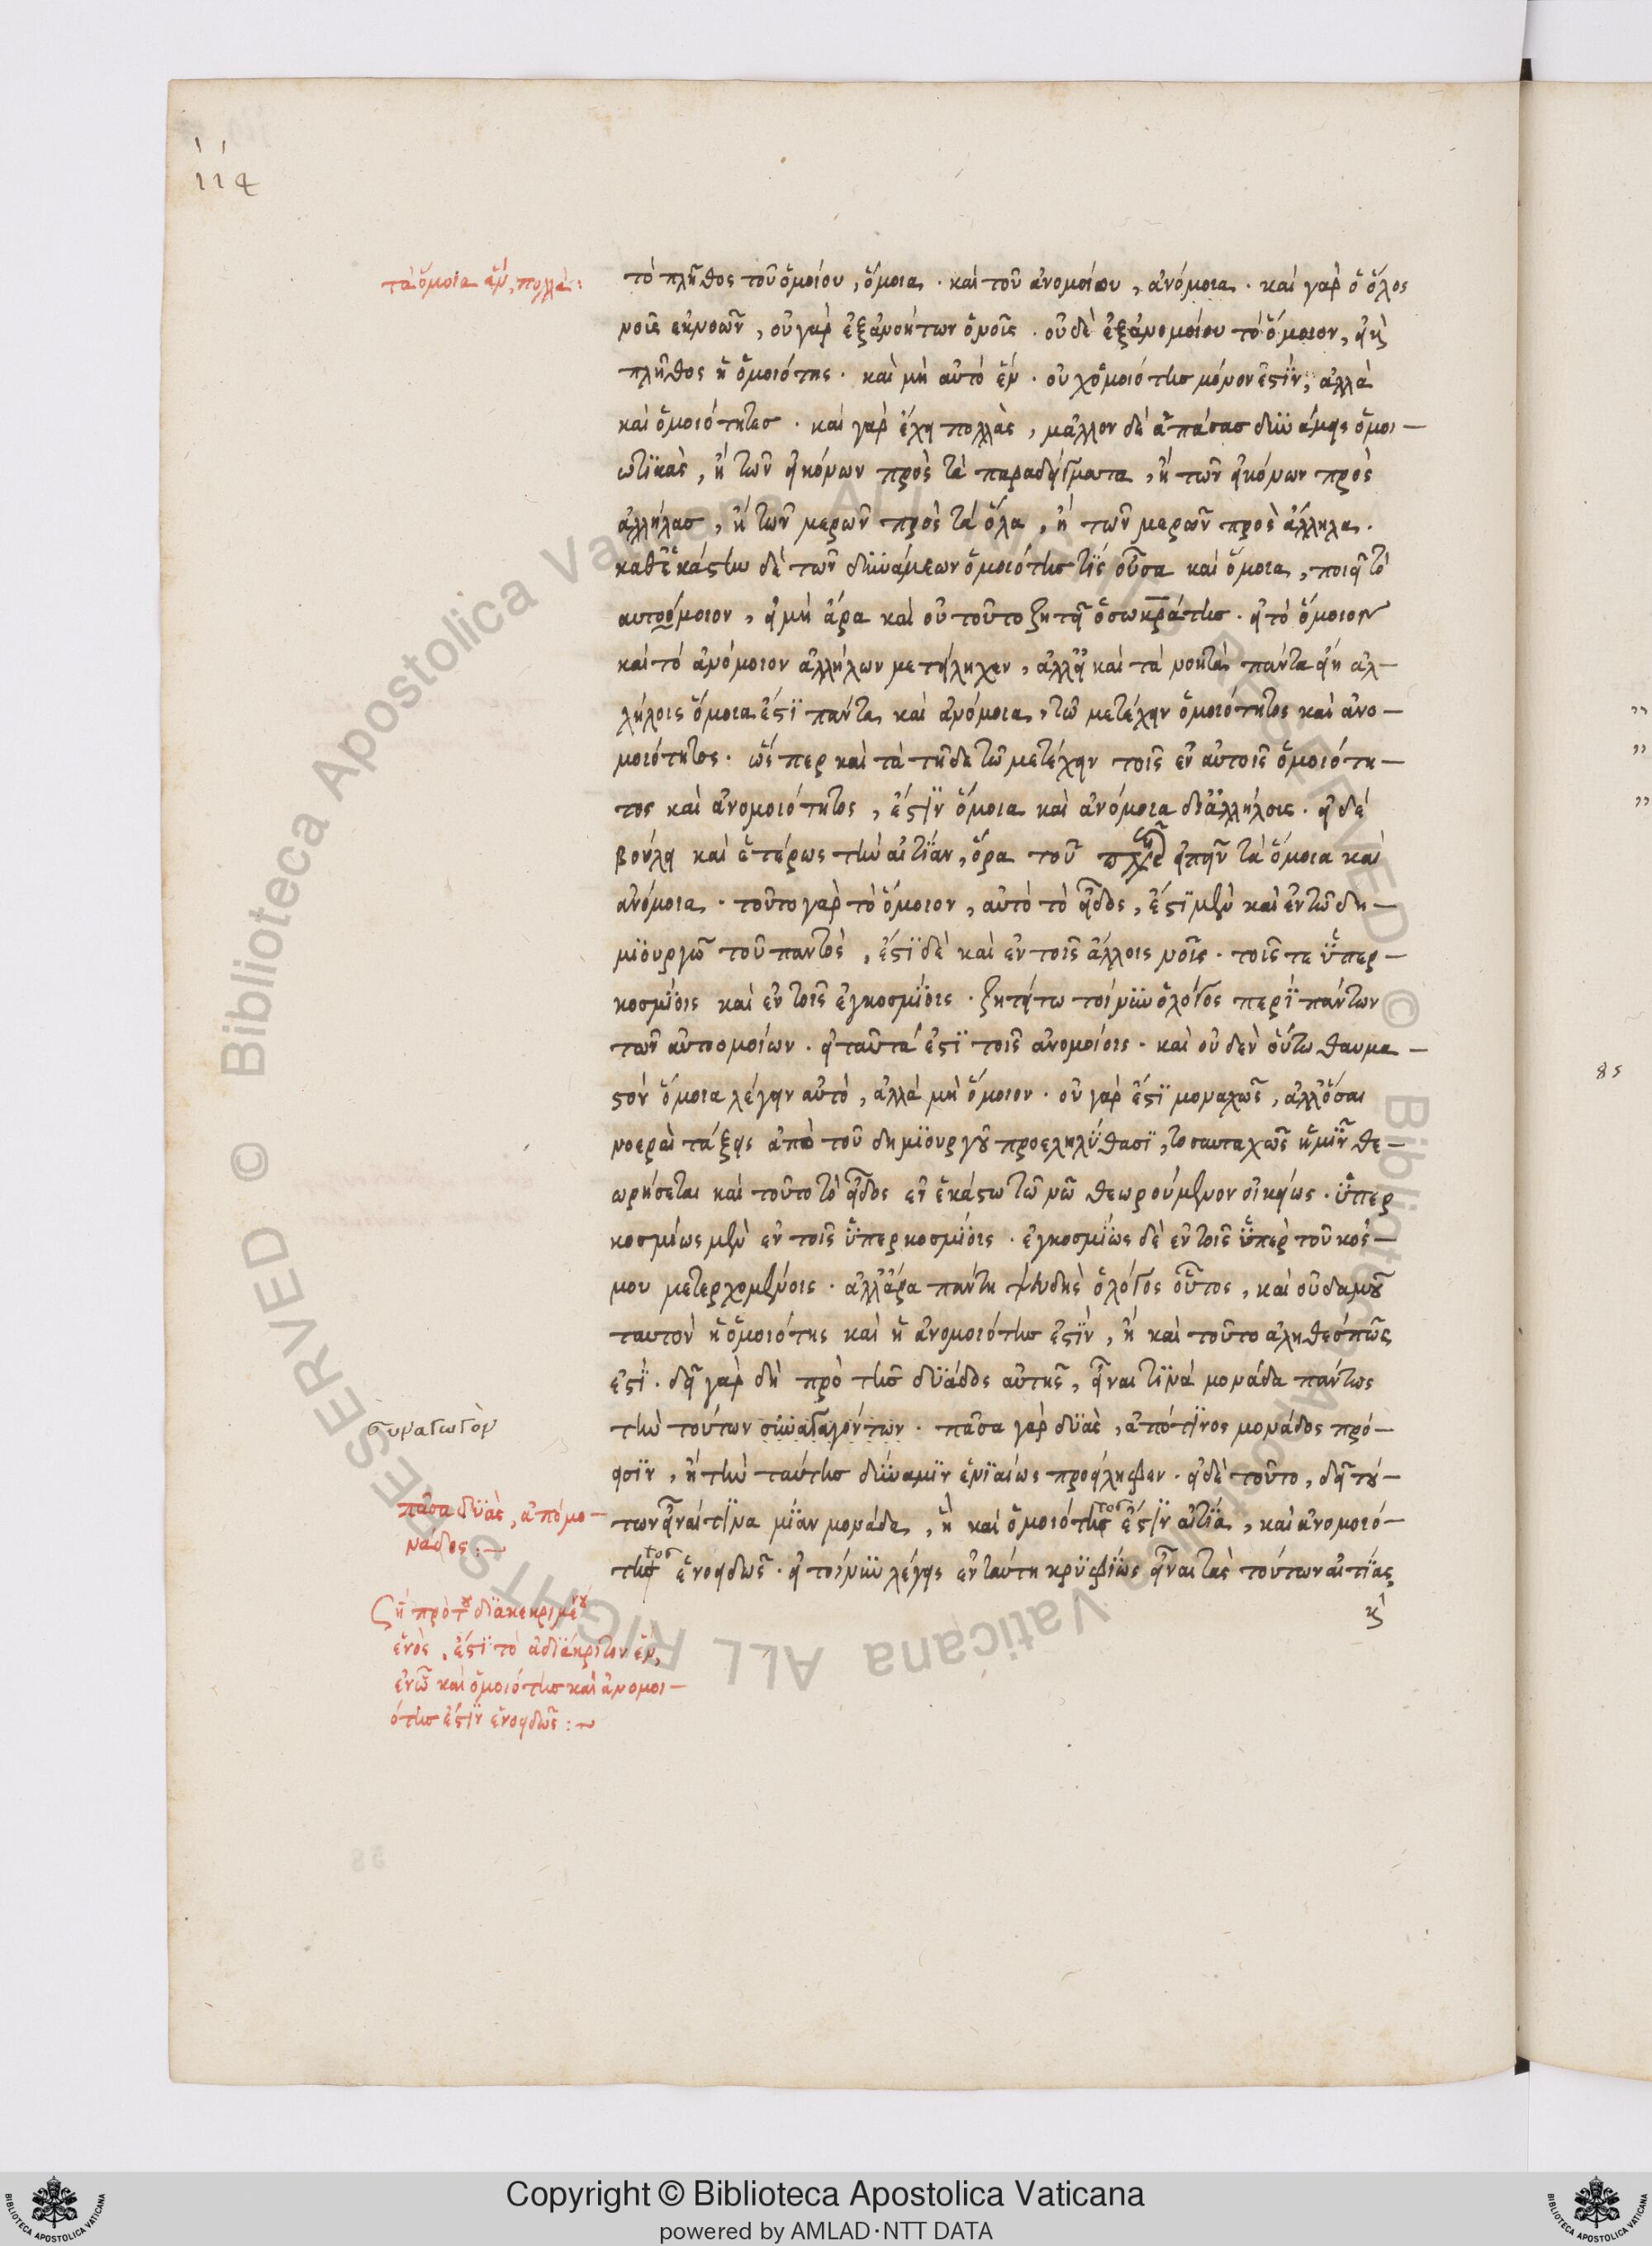 114
τὰ ὅμοια ἓν, πολλά:
τὸ πλῆθος τοῦ ὁμοίου, ὅμοια. καὶ τοῦ ἀνομοίου, ἀνόμοια. καὶ γὰρ ὁ ὅλος
νοῦς ἐκ νοῶν, οὐ γὰρ ἐξ ἀνοήτων ὁ νοῦς. οὐδὲ ἐξ ἀνομοίου τὸ ὅμοιον, εἰ καὶ
πλῆθος ἡ ὁμοιότης. καὶ μὴ αὐτὸ ἕν. οὐχ ὁμοιότης μόνον ἐστὶν, ἀλλὰ
καὶ ὁμοιότητες. καὶ γὰρ ἔχει πολλὰς, μᾶλλον δὲ ἁπάσας δυνάμεις ὁμοι-
ωτικὰς, ἢ τῶν εἰκόνων πρὸς τὰ παραδείγματα, ἢ τῶν εἰκόνων πρὸς
ἀλλήλας, ἢ τῶν μερῶν πρὸς τὰ ὅλα, ἢ τῶν μερῶν πρὸς ἄλληλα.
καθ' ἑκάστην δὲ τῶν δυνάμεων ὁμοιότης τίς οὖσα καὶ ὅμοια, ποιεῖ τὸ
αυτοόμοιον, εἰ μὴ ἄρα καὶ οὐ τοῦτο ζητεῖ ὁ σωκράτης. εἰ τὸ ὅμοιον
καὶ τὸ ἀνόμοιον ἀλλήλων μετείληχεν, ἀλλ' εἰ καὶ τὰ νοητὰ πάντα εἴη ἀλ-
λήλοις ὅμοια ἐστὶ πάντα καὶ ἀνόμοια, τῶ μετέχειν ὁμοιότητος καὶ ἀνο-
μοιότητος. ὥσπερ καὶ τὰ τῆδε τῶ μετέχειν τοῖς ἐν αὐτοῖς ὁμοιότη-
τος καὶ ἀνομοιότητος, ἐστὶν ὅμοια καὶ ἀνόμοια δι' ἀλλήλοις. εἰ δὲ
βούλει καὶ ἑτέρως τὴν αἰτίαν, ὅρα τοῦ εἰπεῖν τὰ ὅμοια καὶ
ἀνόμοια. τοῦτο γὰρ τὸ ὅμοιον, αὐτὸ τὸ εἶδος, ἐστὶ μὲν καὶ ἐν τῶ δη-
μιουργῶ τοῦ παντὸς, ἐστὶ δὲ καὶ ἐν τοῖς ἄλλοις νοῖς. τοῖς τε ὑπερ-
κοσμίοις καὶ ἐν τοῖς ἐγκοσμίοις. ζητείτω τοίνυν ὁ λόγος περὶ πάντων
τῶν αὐτοομοίων. εἰ ταῦτά ἐστὶ τοῖς ἀνομοίοις. καὶ οὐδὲν οὕτω θαυμα-
στὸν ὅμοια λέγειν αὐτὸ, ἀλλὰ μὴ ὅμοιον. οὐ γάρ ἐστὶ μοναχῶς, ἀλλ' ὅσαι
νοεραὶ τάξεις ἀπὸ τοῦ δημιουργοῦ προεληλύθασι, τοσαυταχῶς ἡμῖν θε-
ωρήσεται καὶ τοῦτο τὸ εἶδος ἐν ἑκάστω τῶ νῶ θεωρούμενον οἰκείως. ὑπερ
κοσμίως μὲν ἐν τοῖς ὑπερκοσμίοις. ἐγκοσμίως δὲ ἐν τοῖς ὑπὲρ τοῦ κός-
μου μετερχομένοις. ἀλλ' ἄρα πάντη ψευδὴς ὁ λόγος οὗτος, καὶ οὐδαμοῦ
ταυτὸν ἡ ὁμοιότης καὶ ἡ ἀνομοιότης ἐστὶν, ἢ καὶ τοῦτο ἀληθές πῶς
ἐστί. δεῖ γὰρ δὴ πρὸ τῆς δυάδος αὐτῆς, εἶναι τινὰ μονάδα πάντως
τὴν τούτων συναγαγόντων. πᾶσα γὰρ δυὰς, ἀπό τινος μονάδος πρό-
εισιν, ἢ τὴν ταύτης δύναμιν ἑνιαίως προείληφεν. εἰ δὲ τοῦτο, δεῖ τού-
των εἶναί τινα μίαν μονάδα, ἣ καὶ ὁμοιότητος ἐστὶν αἰτία, καὶ ἀνομοιό-
τητος ἑνοειδῶς. εἰ τοίνυν λέγεις ἐν ταύτη κρυφίως εἶναι τὰς τούτων αἰτίας
καὶ
συναγωγὸν
πᾶσα δυὰς, ἀπὸ μο-
νάδος:~
ζῆ πρὸ τοῦ διακεκριμένου
ἑνὸς, ἐστὶ τὸ ἀδιάκριτον ἓν,
ἐν ὧ καὶ ὁμοιότης καὶ ἀνομοι-
ότης ἐστὶν ἑνοειδῶς:~
85
Copyright © Biblioteca Apostolica Vaticana
powered by AMLAD·NTT DATA